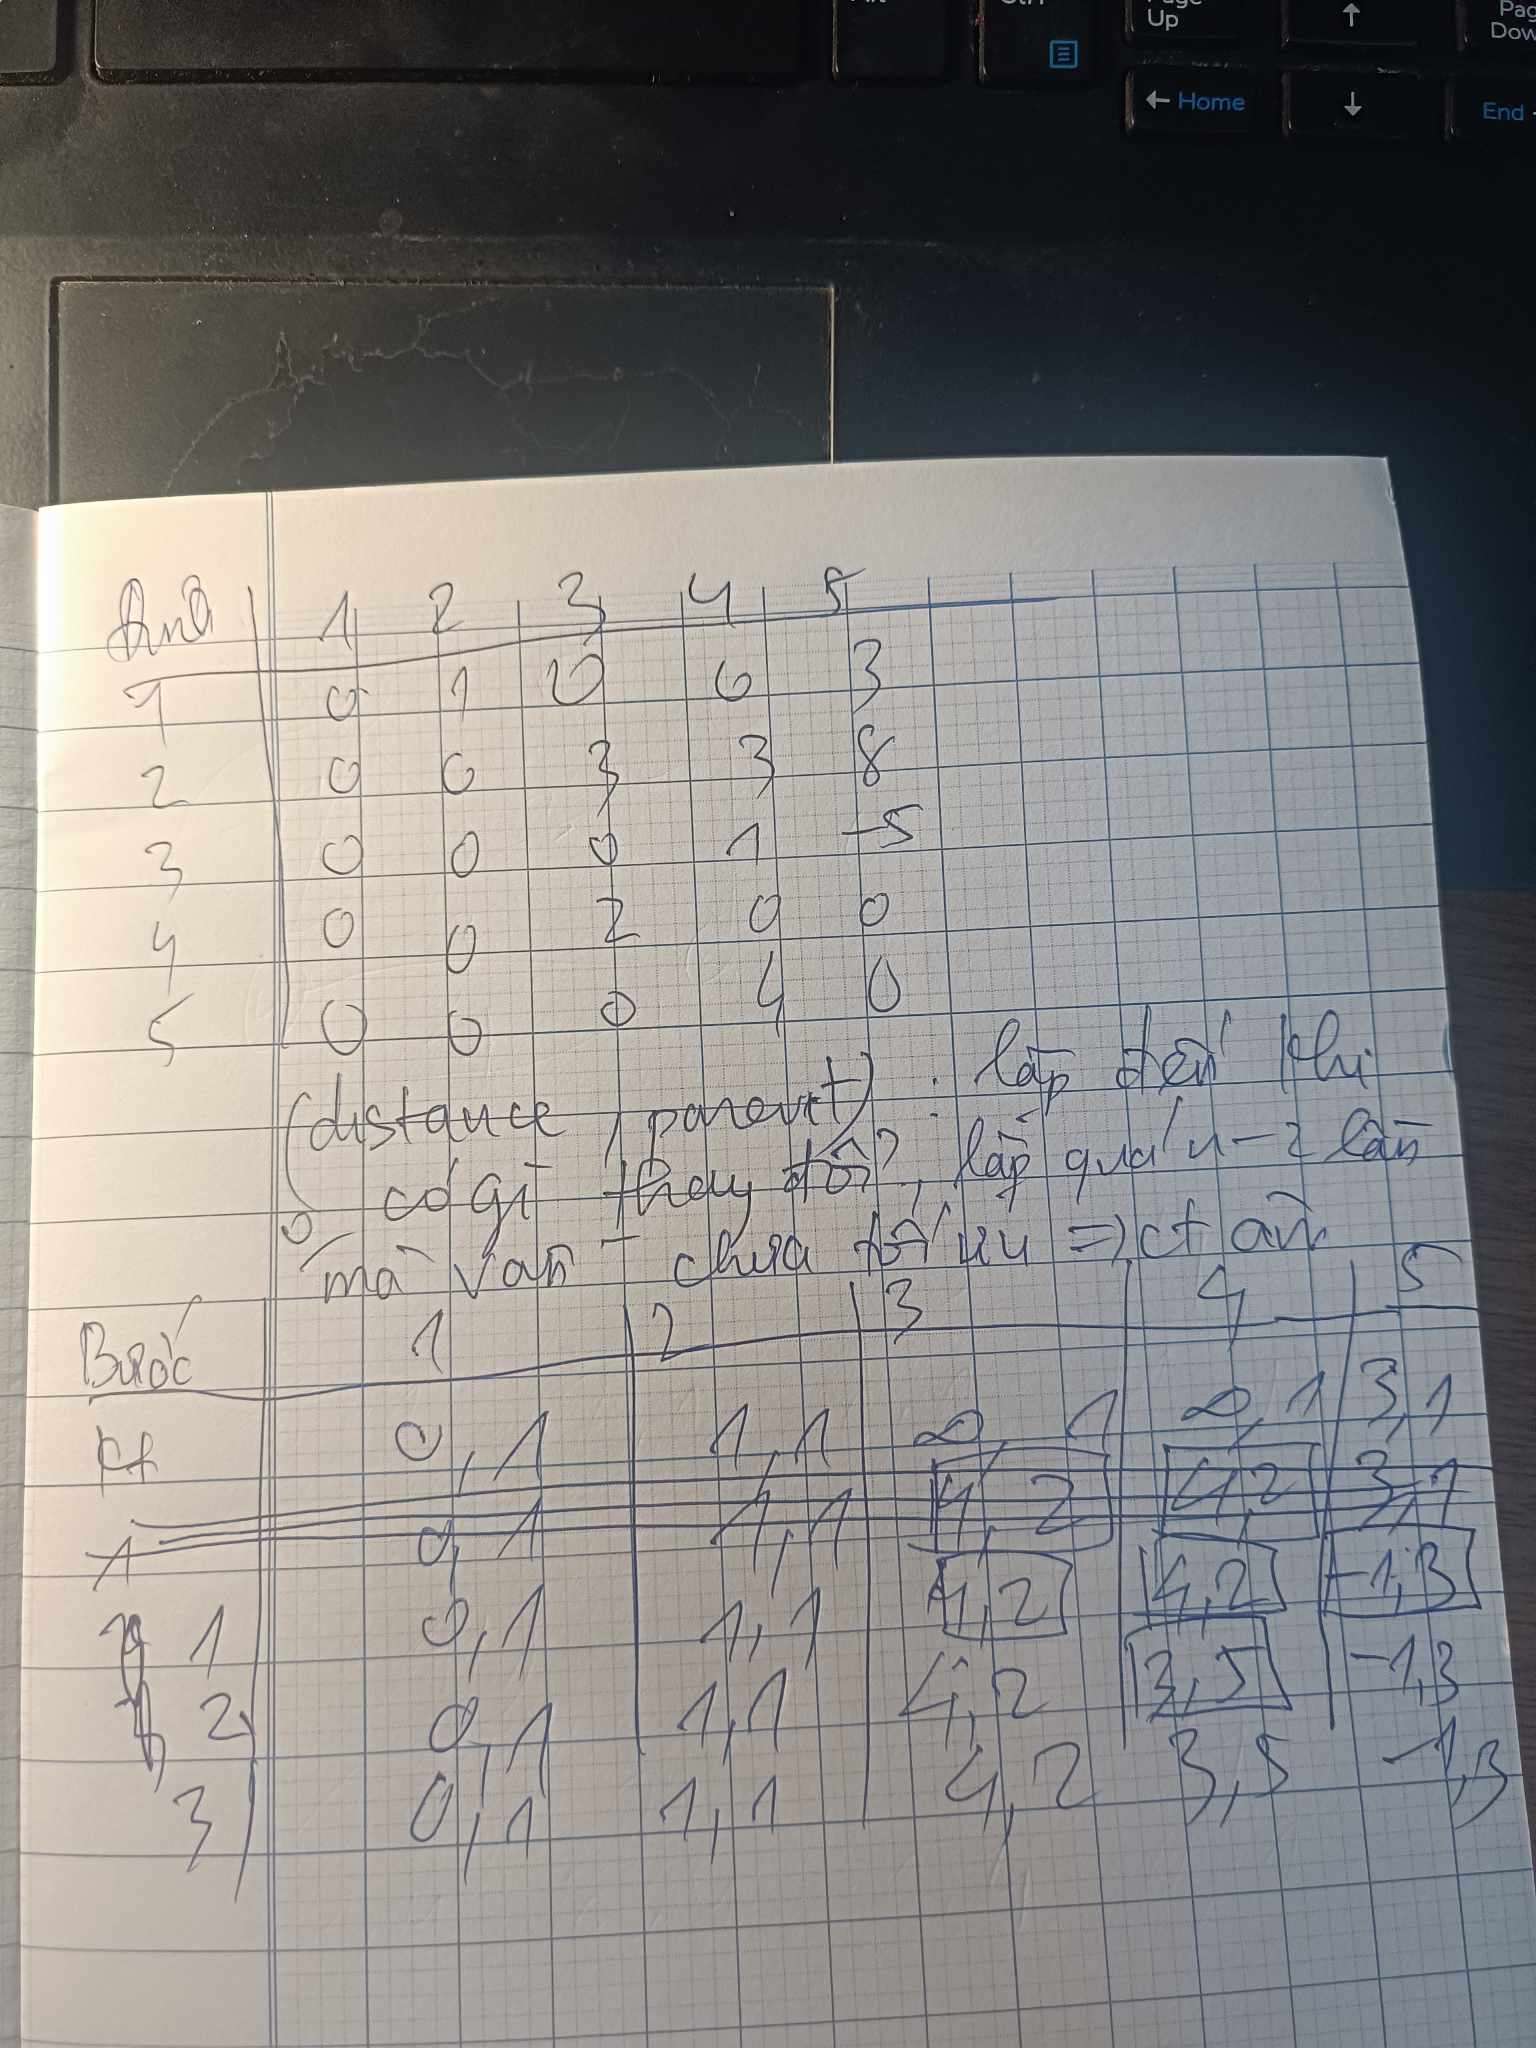 Page Up
↑
Pag Dow
← Home
↓
End
Đỉnh 1 2 3 4 5
1 0 1 0 0 3
2 0 0 3 3 8
3 0 0 0 1 -5
4 0 0 2 0 0
5 0 0 0 4 0
(distance, parent) : lặp đến khi
có gì thay đổi, lặp quá n-2 lần
mà vẫn chưa tối ưu => ct âm
Bước 1 2 3 4 5
kt 0,1 1,1 ∞,1 ∞,1 3,1
1 0,1 1,1 4,2 4,2 3,1
1 0,1 1,1 4,2 4,2 -1,3
2 0,1 1,1 4,2 3,5 -1,3
3 0,1 1,1 4,2 3,5 -1,3